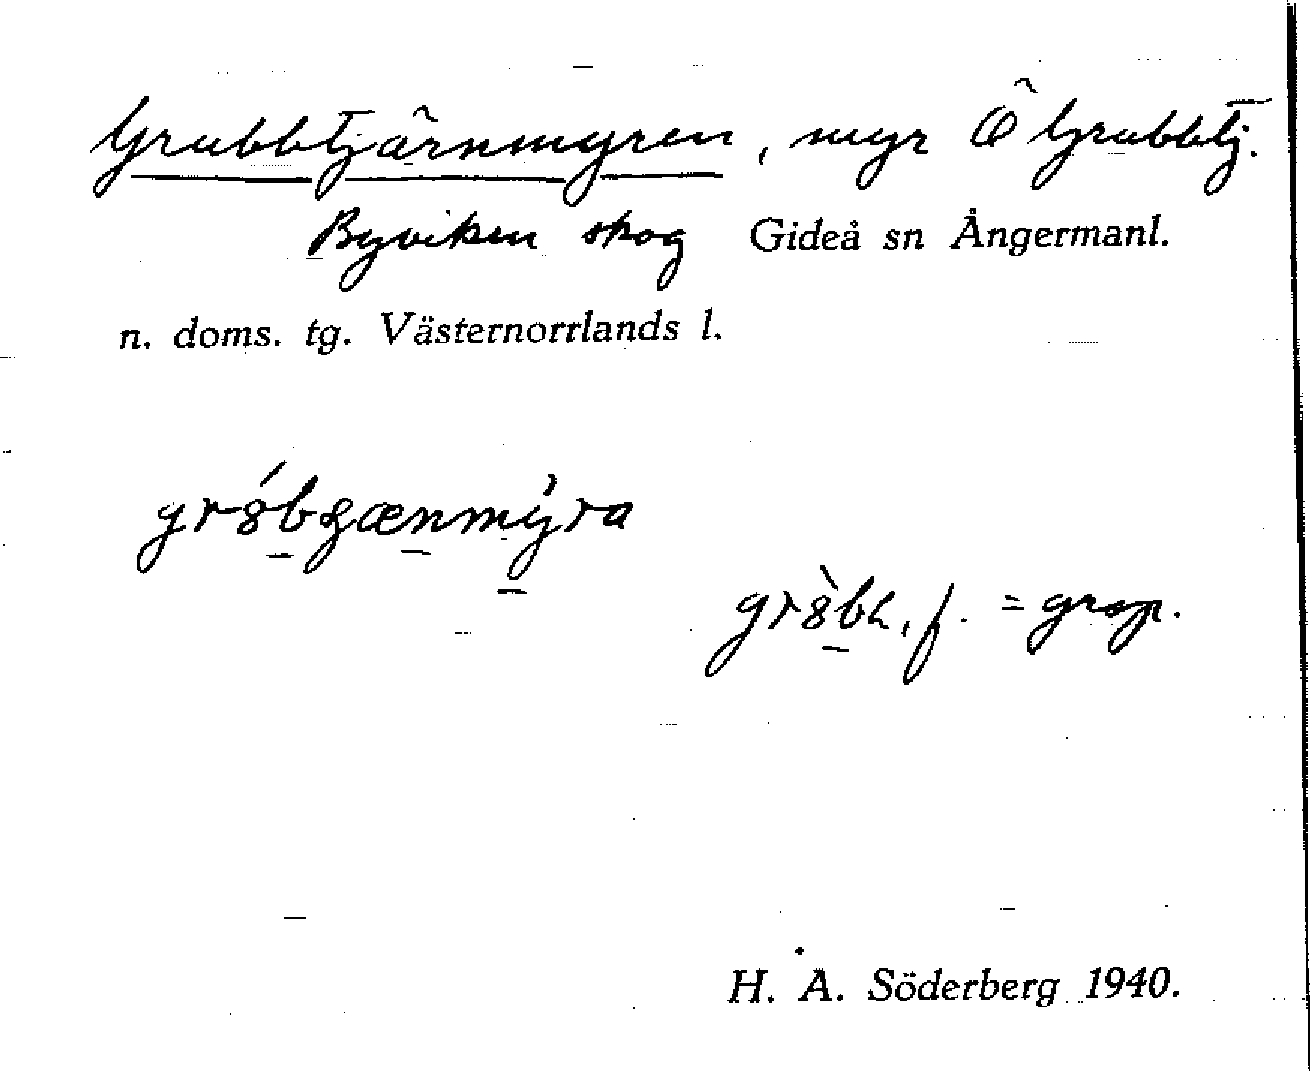 Grubbtjärnmyren, myr Ö Grubbtj.
Byviken skog Gideå sn Ångermanl.
n. doms. tg. Västernorrlands l.
f. = grop.
H. A. Söderberg 1940.